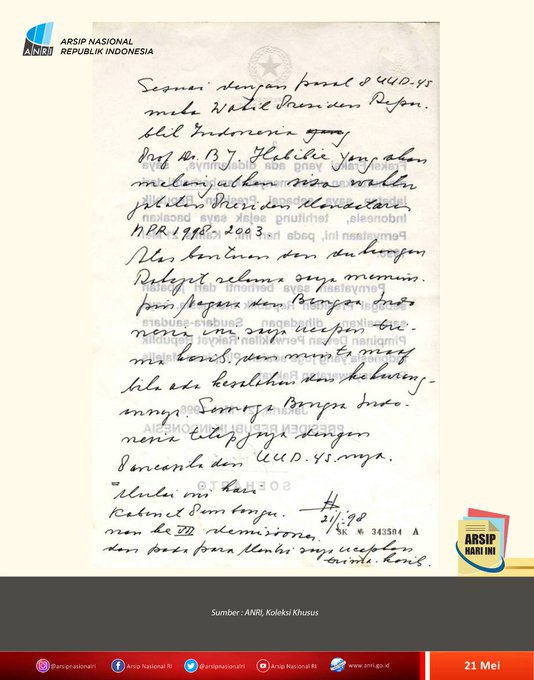 ANRI
ARSIP NASIONAL
REPUBLIK INDONESIA
Sesuai dengan pasal 8 UUD-45
maka Wakil Presiden Repu-
blik Indonesia yang
Prof. Dr. B.J. Habibie yang akan
melanjutkan sisa waktu
jabatan Presiden Mandataris
MPR 1998-2003.
Atas bantuan dan dukungan
Rakyat selama saya memim-
pin Negara dan Bangsa Indo
nesia ini saya ucapkan teri-
ma kasih dan minta maaf
bila ada kesalahan dan kekurang-
annya. Semoga Bangsa Indo-
nesia tetap jaya dengan
Pancasila dan UUD-45-nya.
Mulai ini hari
Kabinet Pembangu-
nan ke VII demisioner
21/5-98
SK № 343594 A
dan pada para Mentri saya ucapkan
terima kasih.
ARSIP
HARI INI
Sumber : ANRI, Koleksi Khusus
@arsipnasionalri
Arsip Nasional RI
@arsipnasionalri
Arsip Nasional RI
www.anri.go.id
21 Mei